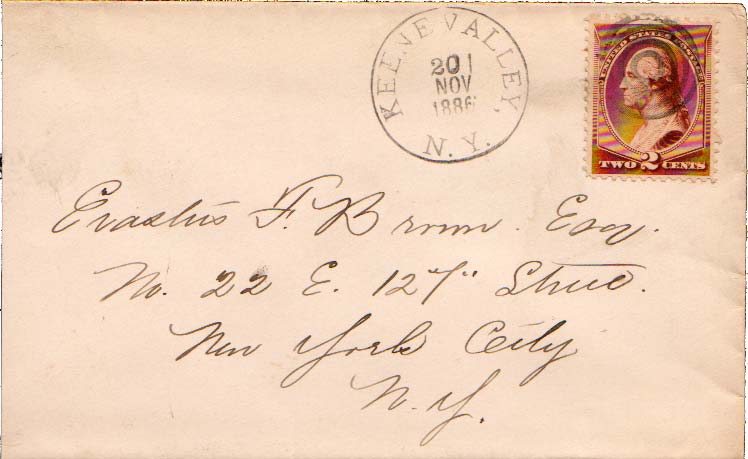 KEENE VALLEY,
20 1
NOV
1886
N. Y.
UNITED STATES POSTAGE
TWO 2 CENTS
Erastus F. Brown. Esq.
No. 22 E. 127" Street.
New York City
N. Y.